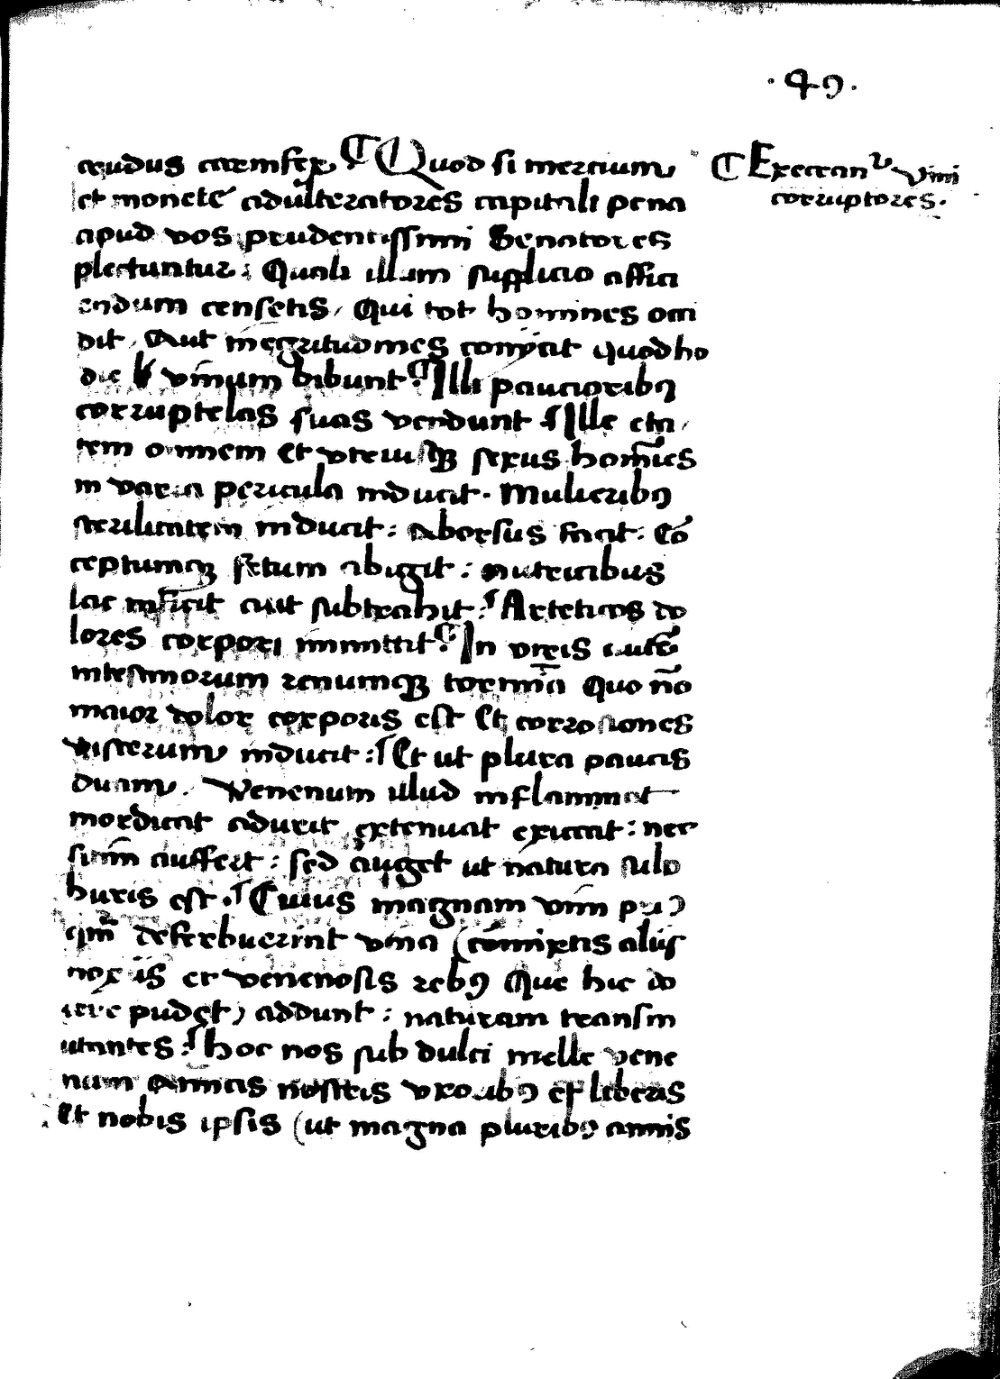 · 49 ·
crudus carnifex ¶ Quod si mercium
¶ Execran^r vini
corruptores.
et monete adulteratores capitali pena
apud vos prudentissimi Senatores
plectuntur: Quali illum supplicio affici
endum censetis, Qui tot homines occi
dit, Aut inegritudines conijcit quod ho
die vinum bibunt? Illi paucioribꝰ
corruptelas suas vendunt Ille eta
tem omnem et vtriusqꝫ sexus homīes
in varia pericula inducit. Mulieribꝰ
sterilitatem inducit: abborsus facit. Cō
ceptumqꝫ fetum abigit: nutricibus
lac inficit aut subtrahit: Arteticos do
lores corpori immittit: In vreis autē
intestinorum renumqꝫ tormīa Quo nō
maior dolor corporis est Et corrosiones
viscerum inducit: Et ut plura paucis
duam. Venenum illud inflammat
mordicat adurit extenuat exiccat: nec
sitim auffert: sed auget ut natura sulp
huris est. Cuius magnam vim
deferbuerint vina (cōmixtis aliis
noxiis et venenosis rebꝰ Que hic do
cere pudet) addunt: naturam transm
utantes: Hoc nos sub dulci melle vene
num amicis nostris vxoribꝰ et liberis
Et nobis ipsis (ut magna pluribꝰ annis